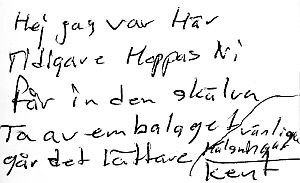 Hej jag var Här
Tidigare Hoppas Ni
får in den skälva
Ta av embalaget
går det lättare
vänliga
Hälsningar
kent